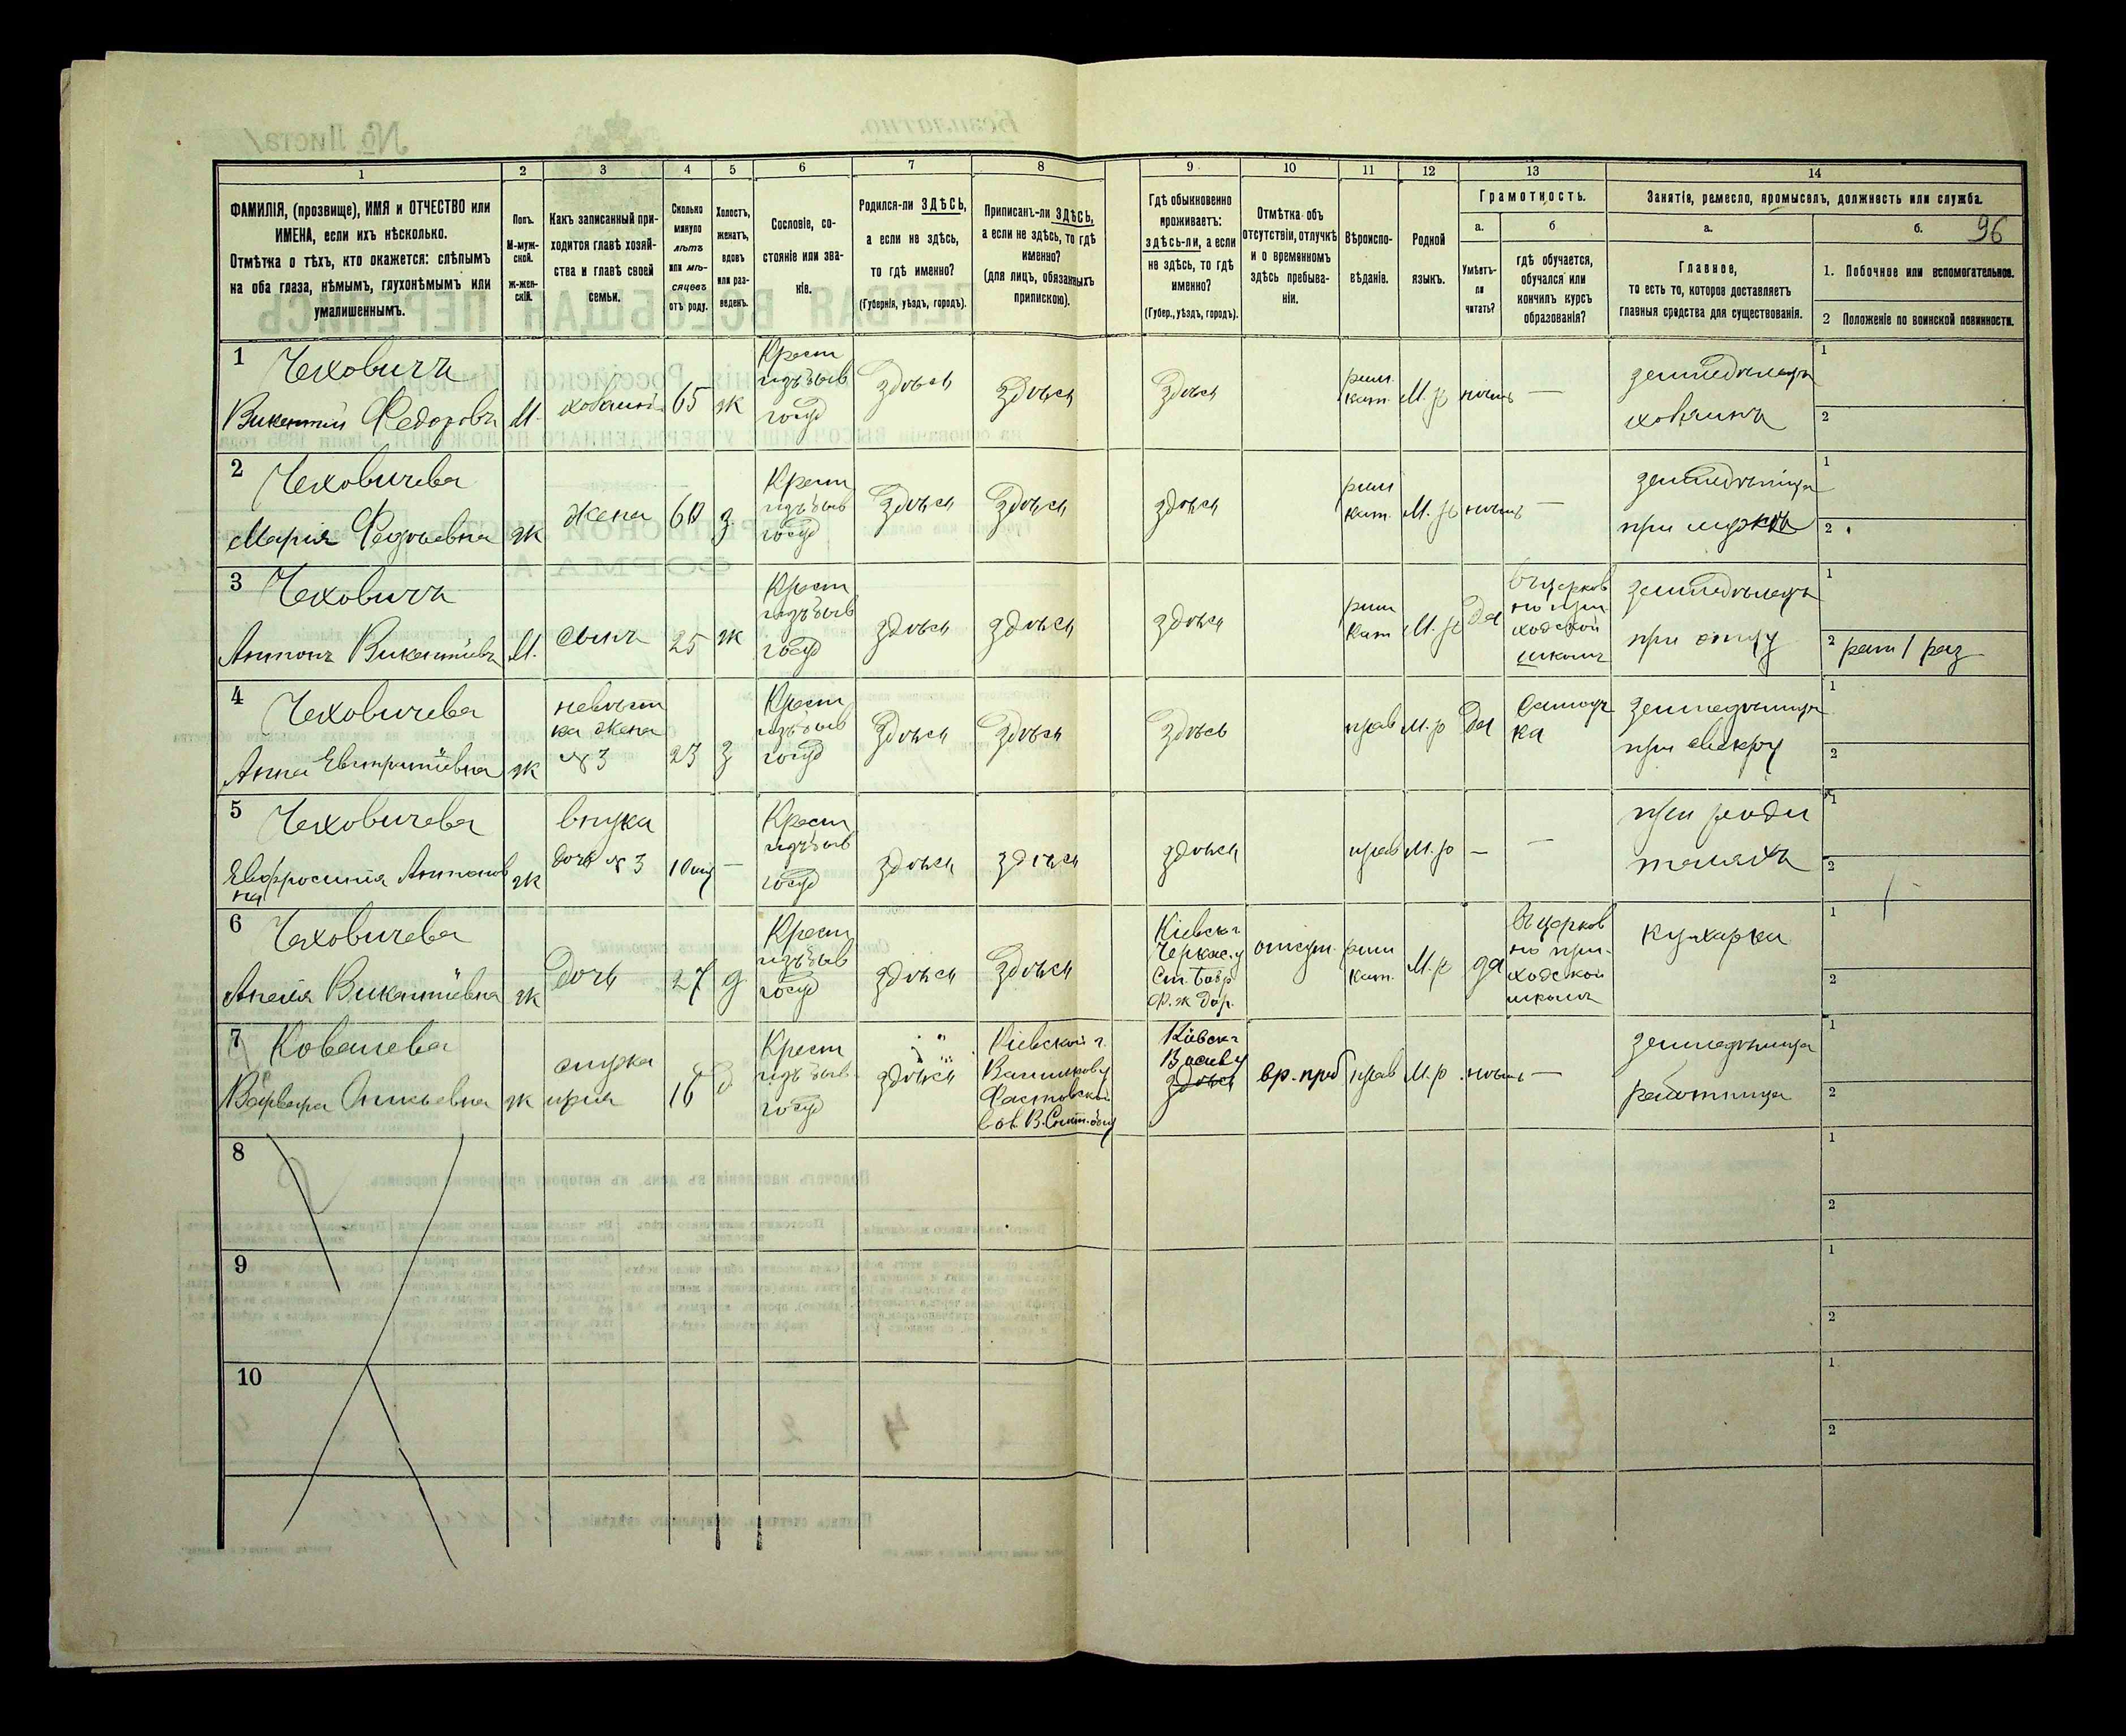 96
1
2
3
4
5
6
7
8
9
10
11
12
13
14
ФАМИЛІЯ, (прозвище), ИМЯ и ОТЧЕСТВО или
ИМЕНА, если ихъ нѣсколько.
Отмѣтка о тѣхъ, кто окажется: слѣпымъ
на оба глаза, нѣмымъ, глухонѣмымъ или
умалишеннымъ.
Полъ.
М-муж-
ской.
Ж-жен-
скій.
Какъ записанный при-
ходится главѣ хозяй-
ства и главѣ своей
семьи.
Сколько
минуло
лѣтъ
или мѣ-
сяцевъ
отъ роду.
Холостъ,
женатъ,
вдовъ
или раз-
веденъ.
Сословіе, со-
стояніе или зва-
ніе.
Родился-ли ЗДѢСЬ,
а если не здѣсь,
то гдѣ именно?
(Губернія, уѣздъ, городъ).
Приписанъ-ли ЗДѢСЬ,
а если не здѣсь, то гдѣ
именно?
(для лицъ, обязанныхъ
припискою).
Гдѣ обыкновенно
проживаетъ:
здѣсь-ли, а если
не здѣсь, то гдѣ
именно?
(Губер., уѣздъ, городъ).
Отмѣтка объ
отсутствіи, отлучкѣ
и о временномъ
здѣсь пребыва-
ніи.
Вѣроиспо-
вѣданіе.
Родной
языкъ.
Грамотность.
а.
б
Умѣетъ-
ли
читать?
гдѣ обучается,
обучался или
кончилъ курсъ
образованія?
Занятіе, ремесло, промыселъ, должность или служба.
а.
б.
Главное,
то есть то, которое доставляетъ
главныя средства для существованія.
1. Побочное или вспомогательное.
2 Положеніе по воинской повинности.
1 Чеховичъ
Викентій Федоровъ
М.
хозяинъ
65
ж
Крест
изъ быв
госуд
здѣсь
здѣсь
здѣсь
рим.
кат.
М. р
нѣтъ
—
земледѣлецъ
хозяинъ
1
2
2 Чеховичева
Марія
ж
жена
60
з
Крест
изъ быв
госуд
здѣсь
здѣсь
здѣсь
рим
кат.
М. р
нѣтъ
—
при мужѣ
1
2
3 Чеховичъ
Антонъ Викентіевъ
М.
сынъ
25
ж
Крест
изъ быв
госуд
здѣсь
здѣсь
здѣсь
рим
кат
М. р
да
въ церков
но при
ходской
школѣ
земледѣлецъ
при отцу
1
2 рат 1 раз
4 Чеховичева
Анна
ж
невѣст
ка жена
№ 3
23
з
Крест
изъ быв
госуд
здѣсь
здѣсь
здѣсь
прав
М. р
да
Самоуч
ка
при свекру
1
2
5 Чеховичева
Евфросинія Антонов
на
ж
внука
дочь № 3
—
Крест
изъ быв
госуд
здѣсь
здѣсь
здѣсь
прав
М. р
—
—
при роди
теляхъ
1
2
6 Чеховичева
Анеля Викентіевна
ж
дочь
27
д
Крест
изъ быв
госуд
здѣсь
здѣсь
Кіевск г
Черкас. у
Ст. Бобр
Ф. ж дор.
отсут.
рим
кат.
М. р
да
Въ церков
но при-
ходской
школѣ
кухарка
1
2
7 Ковалева
Варвара
ж
18
Крест
изъ быв
госуд
здѣсь
Кіевской г.
Васильков у
Фастовской
Кіевск г
Васил у
здѣсь
вр. преб
прав
М. р.
нѣтъ
—
работница
1
2
8
1
2
9
1
2
10
1
2